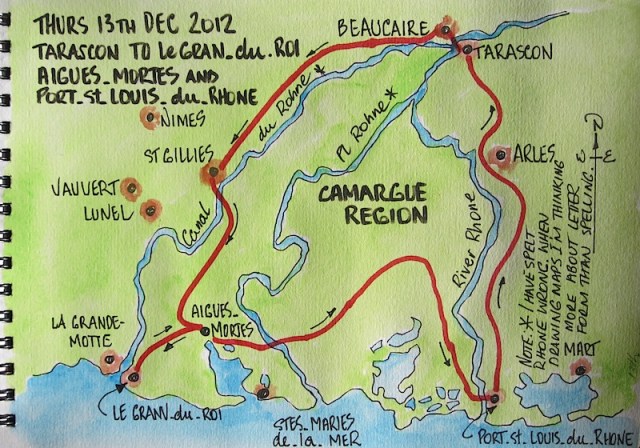 THURS 13TH DEC 2012
TARASCON TO LE GRAN_du_ROI
AIGUES_MORTES AND
PORT_St_LOUIS_du_RHONE
BEAUCAIRE
TARASCON
NIMES
du Rohne *
Pt Rohne *
ST GILLIES
ARLES
N
VAUVERT
LUNEL
Canal
CAMARGUE
REGION
River Rhone
NOTE * I HAVE SPELT
RHONE WRONG. WHEN
DRAWING MAPS I'M THINKING
MORE ABOUT LETTER
FORM THAN SPELLING.
AIGUES_
MORTES
LA GRANDE-
MOTTE
MART
LE GRAN_du_ROI
STES_MARIES
de_la_MER
PORT_St_LOUIS_du_RHONE